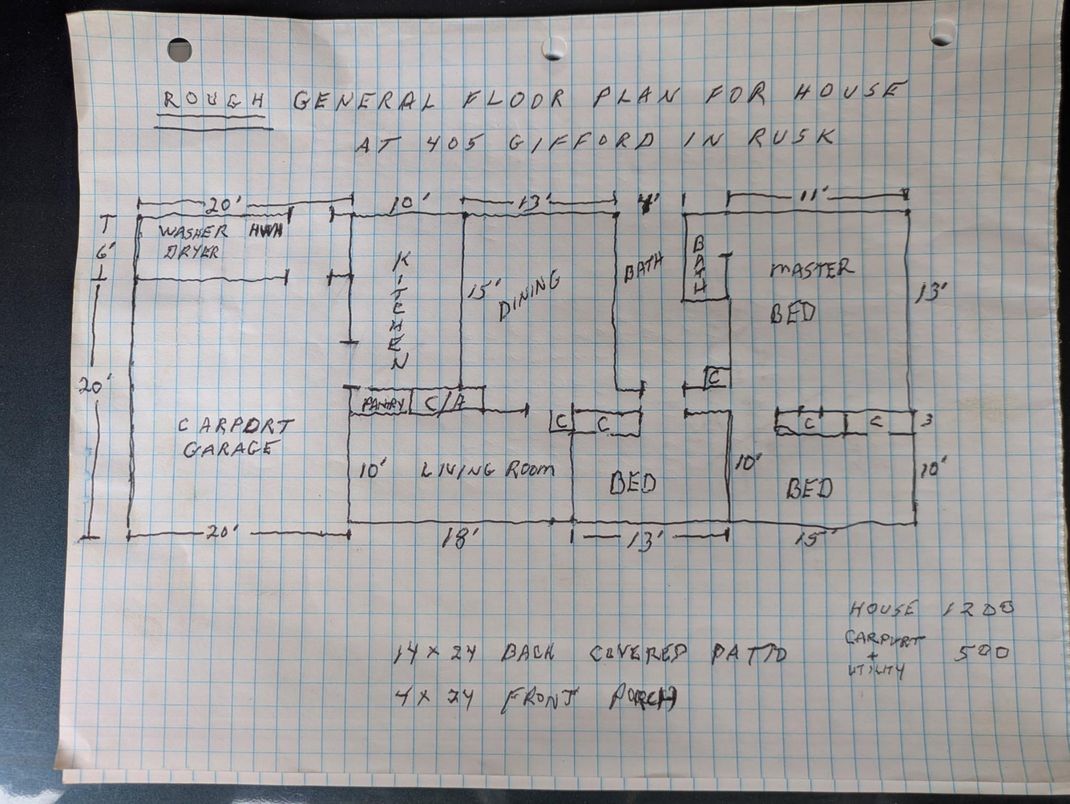 ROUGH GENERAL FLOOR PLAN FOR HOUSE
AT 405 GIFFORD IN RUSK
20' 10' 13' 4' 11'
6'
WASHER HWH
DRYER
KITCHEN
15'
DINING
BATH
BATH
MASTER
BED
13'
20'
C
PANTRY C/A
C C
C C 3
CARPORT
GARAGE
10' LIVING ROOM
BED
10'
BED
10'
20' 18' 13' 15'
HOUSE 1200
CARPORT
+
UTILITY
500
14 x 24 BACK COVERED PATIO
4 x 24 FRONT PORCH